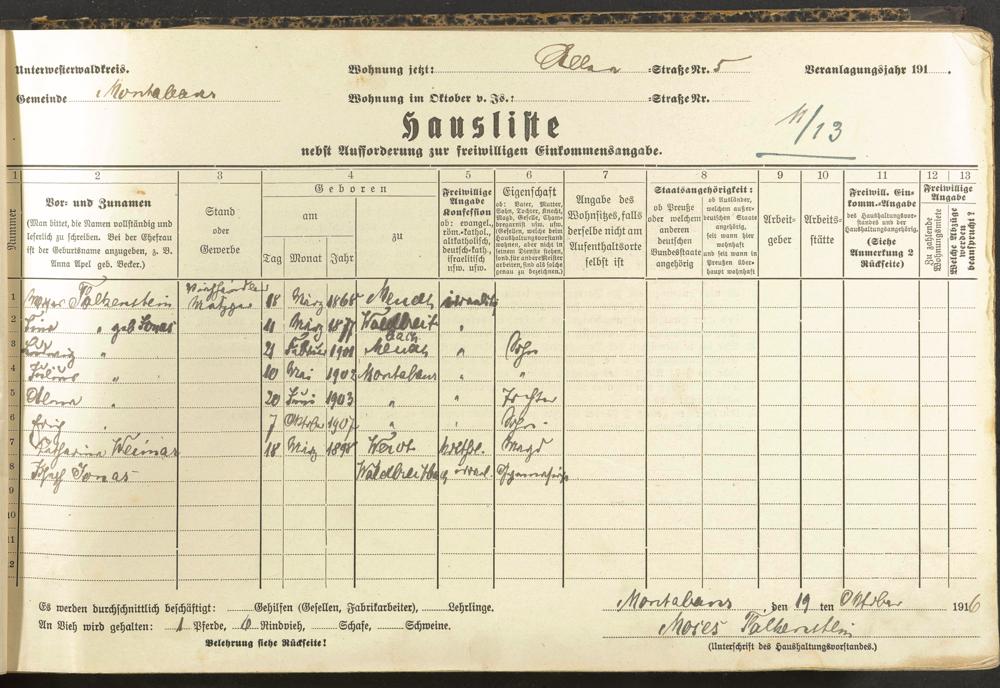 Unterwesterwaldkreis. Wohnung jetzt: Allee -Straße Nr. 5 Veranlagungsjahr 191 .
Gemeinde Montabaur Wohnung im Oktober v. Js.: -Straße Nr.
11/13
Hausliste
nebst Aufforderung zur freiwilligen Einkommensangabe.
1 2 3 4 5 6 7 8 9 10 11 12 13
Nummer
Vor- und Zunamen
(Man bittet, die Namen vollständig und
leserlich zu schreiben. Bei der Ehefrau
ist der Geburtsname anzugeben, z. B.
Anna Apel geb. Becker.)
Stand
oder
Gewerbe
Geboren
am
Tag Monat Jahr
zu
Freiwillige
Angabe
Konfession
ob: evangel.,
röm.-kathol.,
altkatholisch,
deutsch-kath.,
israelitisch
usw. usw.
Eigenschaft
ob: Vater, Mutter,
Sohn, Tochter, Knecht,
Magd, Geselle, Cham-
bregarnist usw. usw.
Gesellen, welche beim
Haushaltungsvorstand
wohnen, aber nicht in
seinem Dienste stehen,
sond. für andere Meister
arbeiten, sind als solche
genau zu bezeichnen.)
Angabe des
Wohnsitzes, falls
derselbe nicht am
Aufenthaltsorte
selbst ist
Staatsangehörigkeit:
ob Preuße
oder welchem
anderen
deutschen
Bundesstaate
angehörig
ob Ausländer,
welchem außer-
deutschen Staate
angehörig,
seit wann hier
wohnhaft
und seit wann in
Preußen über-
haupt wohnhaft
Arbeit-
geber
Arbeits-
stätte
Freiwill. Ein-
komm.-Angabe
des Haushaltungsvor-
standes und der
Haushaltungsangehörig.
(Siehe
Anmerkung 2
Rückseite)
Freiwillige
Angabe
Zu zahlende
Wohnungsmiete
Welche Abzüge
werden
beansprucht?
1 Moses Falkenstein Viehhändler Metzger 18 März 1868 Meudt israelitisch
2 Lina " geb Jonas 11 März 1877 Waldbreitbach "
3 Ludwig " 21 Februar 1901 Meudt " Sohn
4 Julius " 10 Mai 1902 Montabaur " "
5 Alma " 20 Juni 1903 " " Tochter
6 Erich " 7 Oktober 1907 " " Sohn
7 Katharina Weimar 18 März 1898 Weroth kathol. Magd
8 Josef Jonas Waldbreitbach israel.
9
10
11
12
Es werden durchschnittlich beschäftigt: Gehilfen (Gesellen, Fabrikarbeiter), Lehrlinge.
An Vieh wird gehalten: 1 Pferde, 6 Rindvieh, Schafe, Schweine.
Belehrung siehe Rückseite!
Montabaur, den 19 ten Oktober 1916
Moses Falkenstein
(Unterschrift des Haushaltungsvorstandes.)